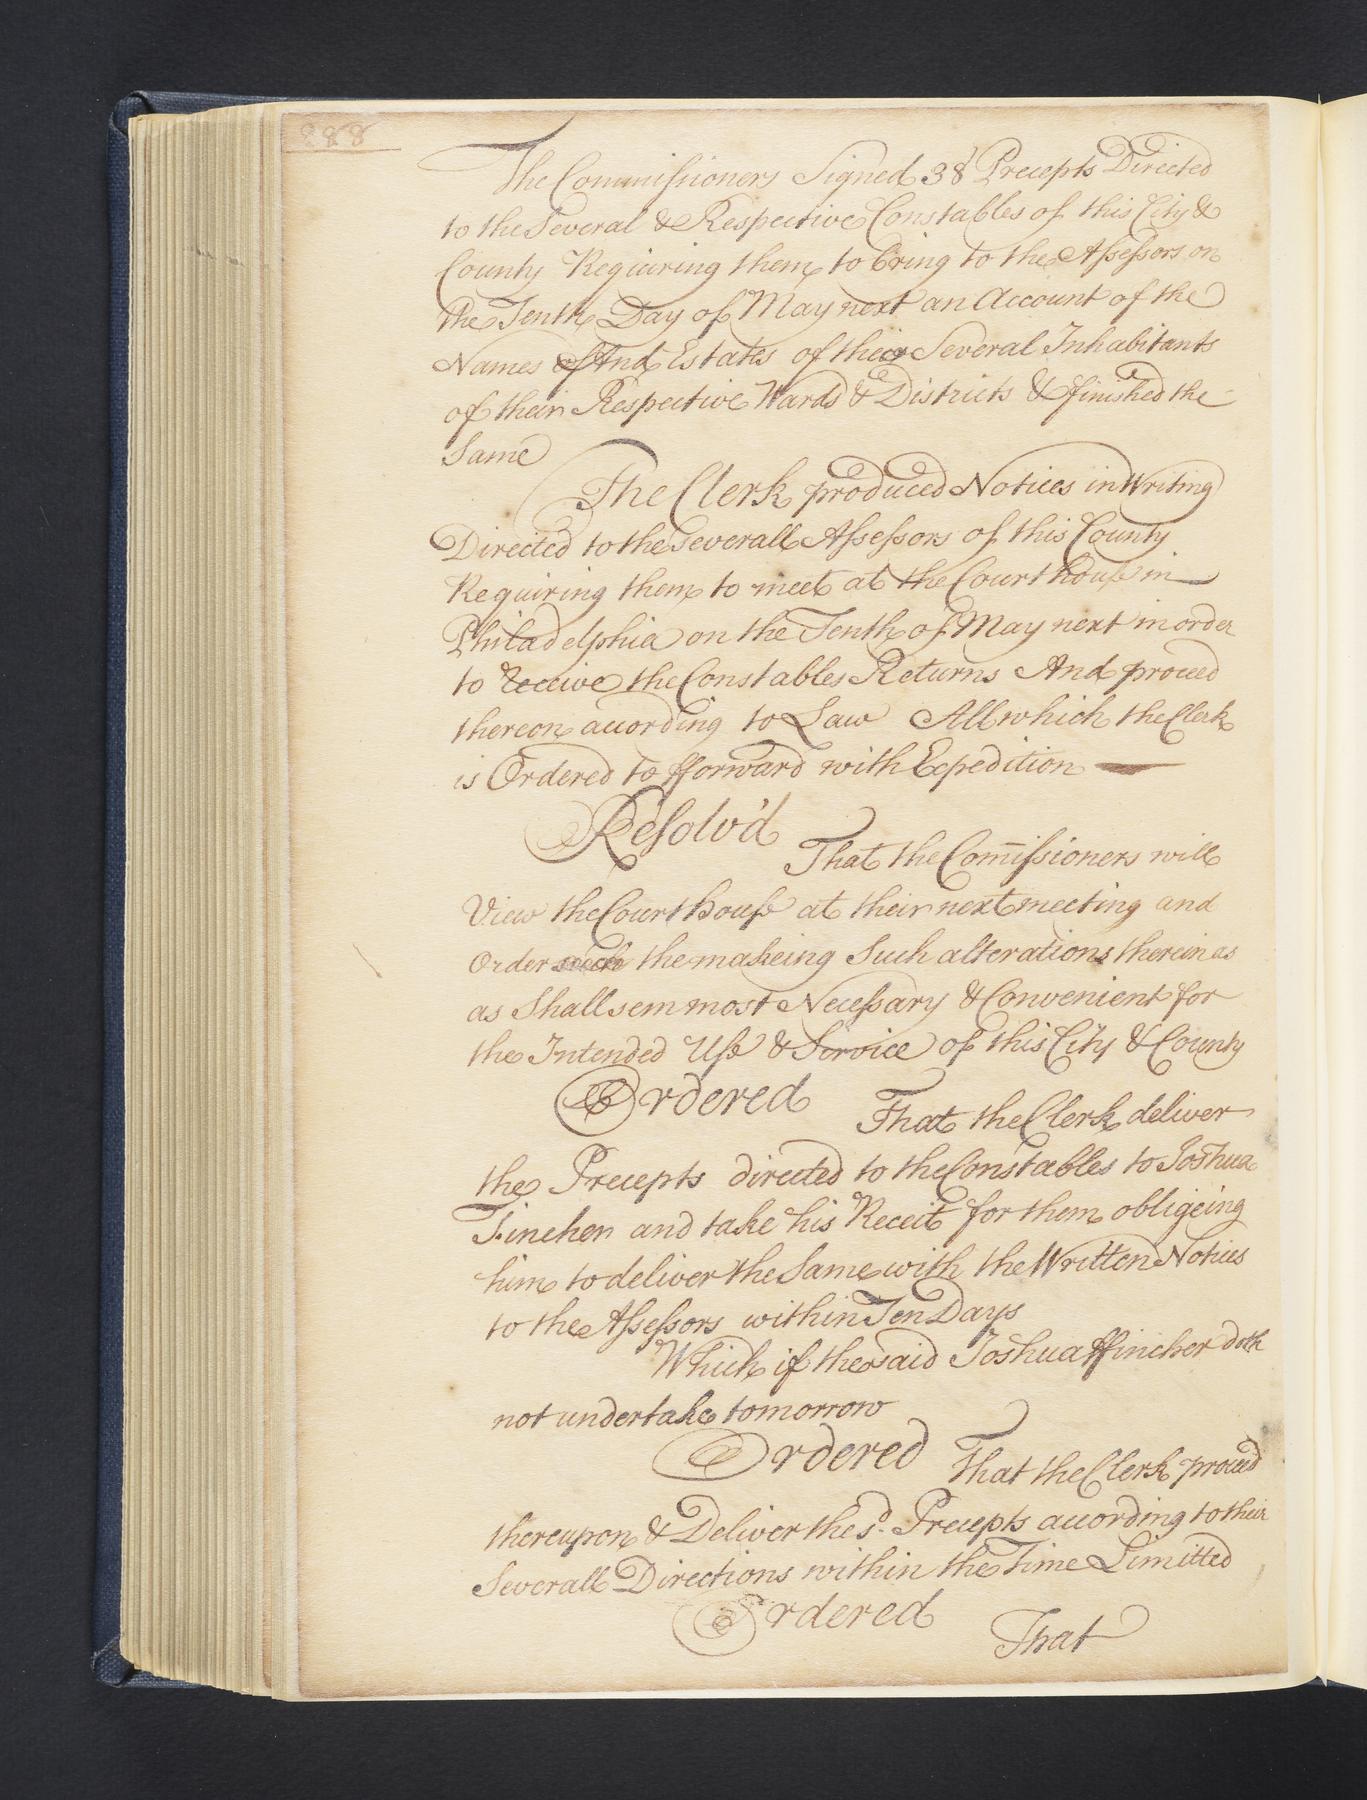 288
The Commissioners Signed 38 Precepts Directed
to the Several & Respective Constables of this City &
County Requiring them to bring to the Assessors on
the Tenth Day of May next an Account of the
Names And Estates of their Several Inhabitants
of their Respective Wards & Districts & finished the
Same
The Clerk produced Notices in Writing
Directed to the Severall Assessors of this County
Requiring them to meet at the Court house in
Philadelphia on the Tenth of May next in order
to Receive the Constables Returns And proceed
thereon according to Law All which the Clerk
is Ordered to fforward with Expedition
Resolv'd
That the Com̄issioners will
View the Court house at their next meeting and
Order the makeing Such alterations therein as
as Shall sem most Necessary & Convenient for
the Intended Use & Service of this City & County
Ordered
That the Clerk deliver
the Precepts directed to the Constables to Joshua
Fincher and take his Receit for them obligeing
him to deliver the Same with the Written Notices
to the Assessors within Ten Days
Which if the said Joshua ffincher doth
not undertake tomorrow
Ordered
That the Clerk proceed
thereupon & Deliver the sd. Precepts according to their
Severall Directions within the Time Limitted
Ordered
That